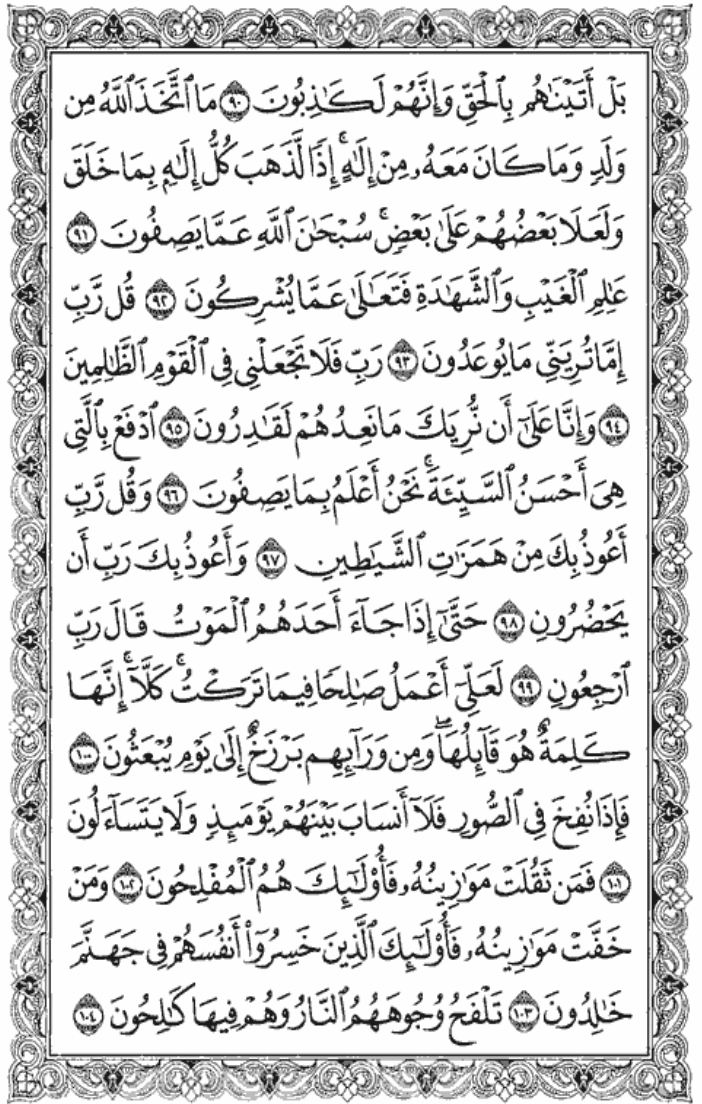 بَلْ أَتَيْنَٰهُم بِٱلْحَقِّ وَإِنَّهُمْ لَكَٰذِبُونَ ٩٠ مَا ٱتَّخَذَ ٱللَّهُ مِن
وَلَدٍ وَمَا كَانَ مَعَهُۥ مِنْ إِلَٰهٍۚ إِذًا لَّذَهَبَ كُلُّ إِلَٰهٍۭ بِمَا خَلَقَ
وَلَعَلَا بَعْضُهُمْ عَلَىٰ بَعْضٍۚ سُبْحَٰنَ ٱللَّهِ عَمَّا يَصِفُونَ ٩١
عَٰلِمِ ٱلْغَيْبِ وَٱلشَّهَٰدَةِ فَتَعَٰلَىٰ عَمَّا يُشْرِكُونَ ٩٢ قُل رَّبِّ
إِمَّا تُرِيَنِّي مَا يُوعَدُونَ ٩٣ رَبِّ فَلَا تَجْعَلْنِي فِي ٱلْقَوْمِ ٱلظَّٰلِمِينَ
٩٤ وَإِنَّا عَلَىٰٓ أَن نُّرِيَكَ مَا نَعِدُهُمْ لَقَٰدِرُونَ ٩٥ ٱدْفَعْ بِٱلَّتِي
هِيَ أَحْسَنُ ٱلسَّيِّئَةَۚ نَحْنُ أَعْلَمُ بِمَا يَصِفُونَ ٩٦ وَقُل رَّبِّ
أَعُوذُ بِكَ مِنْ هَمَزَٰتِ ٱلشَّيَٰطِينِ ٩٧ وَأَعُوذُ بِكَ رَبِّ أَن
يَحْضُرُونِ ٩٨ حَتَّىٰٓ إِذَا جَآءَ أَحَدَهُمُ ٱلْمَوْتُ قَالَ رَبِّ
ٱرْجِعُونِ ٩٩ لَعَلِّيٓ أَعْمَلُ صَٰلِحًا فِيمَا تَرَكْتُۚ كَلَّآۚ إِنَّهَا
كَلِمَةٌ هُوَ قَآئِلُهَاۖ وَمِن وَرَآئِهِم بَرْزَخٌ إِلَىٰ يَوْمِ يُبْعَثُونَ ١٠٠
فَإِذَا نُفِخَ فِي ٱلصُّورِ فَلَآ أَنسَابَ بَيْنَهُمْ يَوْمَئِذٍ وَلَا يَتَسَآءَلُونَ
١٠١ فَمَن ثَقُلَتْ مَوَٰزِينُهُۥ فَأُو۟لَٰٓئِكَ هُمُ ٱلْمُفْلِحُونَ ١٠٢ وَمَنْ
خَفَّتْ مَوَٰزِينُهُۥ فَأُو۟لَٰٓئِكَ ٱلَّذِينَ خَسِرُوٓا۟ أَنفُسَهُمْ فِي جَهَنَّمَ
خَٰلِدُونَ ١٠٣ تَلْفَحُ وُجُوهَهُمُ ٱلنَّارُ وَهُمْ فِيهَا كَٰلِحُونَ ١٠٤